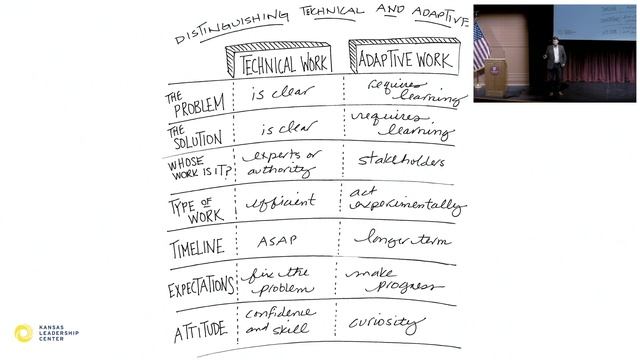 DISTINGUISHING TECHNICAL AND ADAPTIVE
TECHNICAL WORK ADAPTIVE WORK
THE PROBLEM is clear requires learning
THE SOLUTION is clear requires learning
WHOSE WORK IS IT? experts or authority stakeholders
TYPE OF WORK efficient act experimentally
TIMELINE ASAP longer term
EXPECTATIONS fix the problem make progress
ATTITUDE confidence and skill curiosity
KANSAS
LEADERSHIP
CENTER